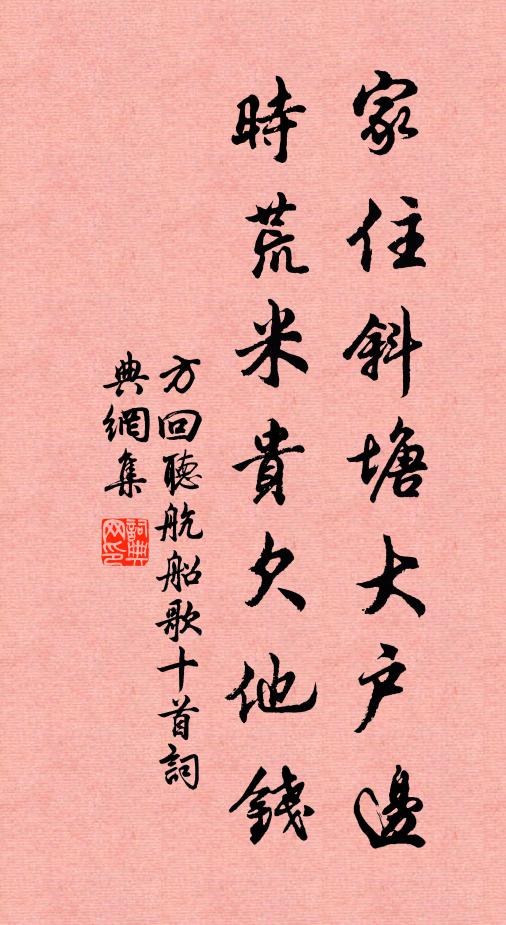 家住斜塘大戶邊
時荒米貴欠他錢
方回聽航船歌十首詞
典網集
詞典网印